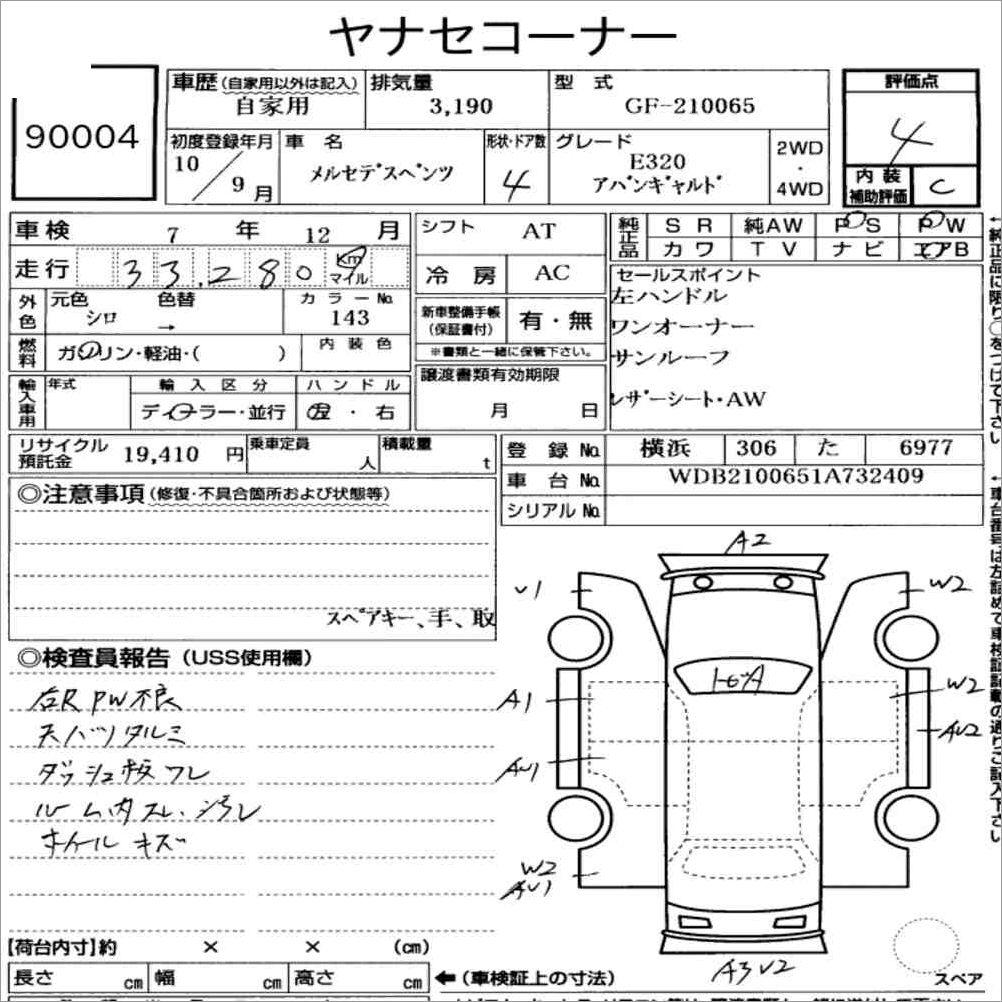 ヤナセコーナー
90004
車歴 (自家用以外は記入) 排気量 型 式 評価点
自家用 3,190 GF-210065 4
初度登録年月 車 名 形状・ドア数 グレード 2WD・4WD
10/9月 メルセデスベンツ 4 E320 アバンギャルド
内装補助評価 C
車検 7 年 12 月
走行 33,280 Km マイル
外色 元色 色替 カラーNo.
シロ → 143
燃料 ガソリン・軽油・( ) 内 装 色
輸入車用 年式 輸 入 区 分 ハ ン ド ル
ディーラー・並行 左 ・ 右
シフト AT
冷 房 AC
新車整備手帳(保証書付) 有・無
※書類と一緒に保管下さい。
譲渡書類有効期限
月 日
純正品 S R 純AW P S P W
カ ワ T V ナ ビ エアB
セールスポイント
左ハンドル
ワンオーナー
サンルーフ
レザーシート・AW
←純正品に限り○をつけて下さい
リサイクル預託金 19,410 円 乗車定員 人 積載量 t
登 録 No. 横浜 306 た 6977
車 台 No. WDB2100651A732409
シリアル No.
◎注意事項 (修復・不具合箇所および状態等)
スペアキー、手、取
◎検査員報告 (USS使用欄)
右R PW不良
天バリタルミ
ダッシュ板ワレ
ルーム内スレ・汚レ
ホイール キズ
A2
V1 W2
トビA
A1 W2
AU1 AU2
W2
AU1
A3 V2
スペア
←車台番号は左詰めで車検証記載の通りご記入下さい
【荷台内寸】約 × × (cm)
長さ cm 幅 cm 高さ cm ←(車検証上の寸法)